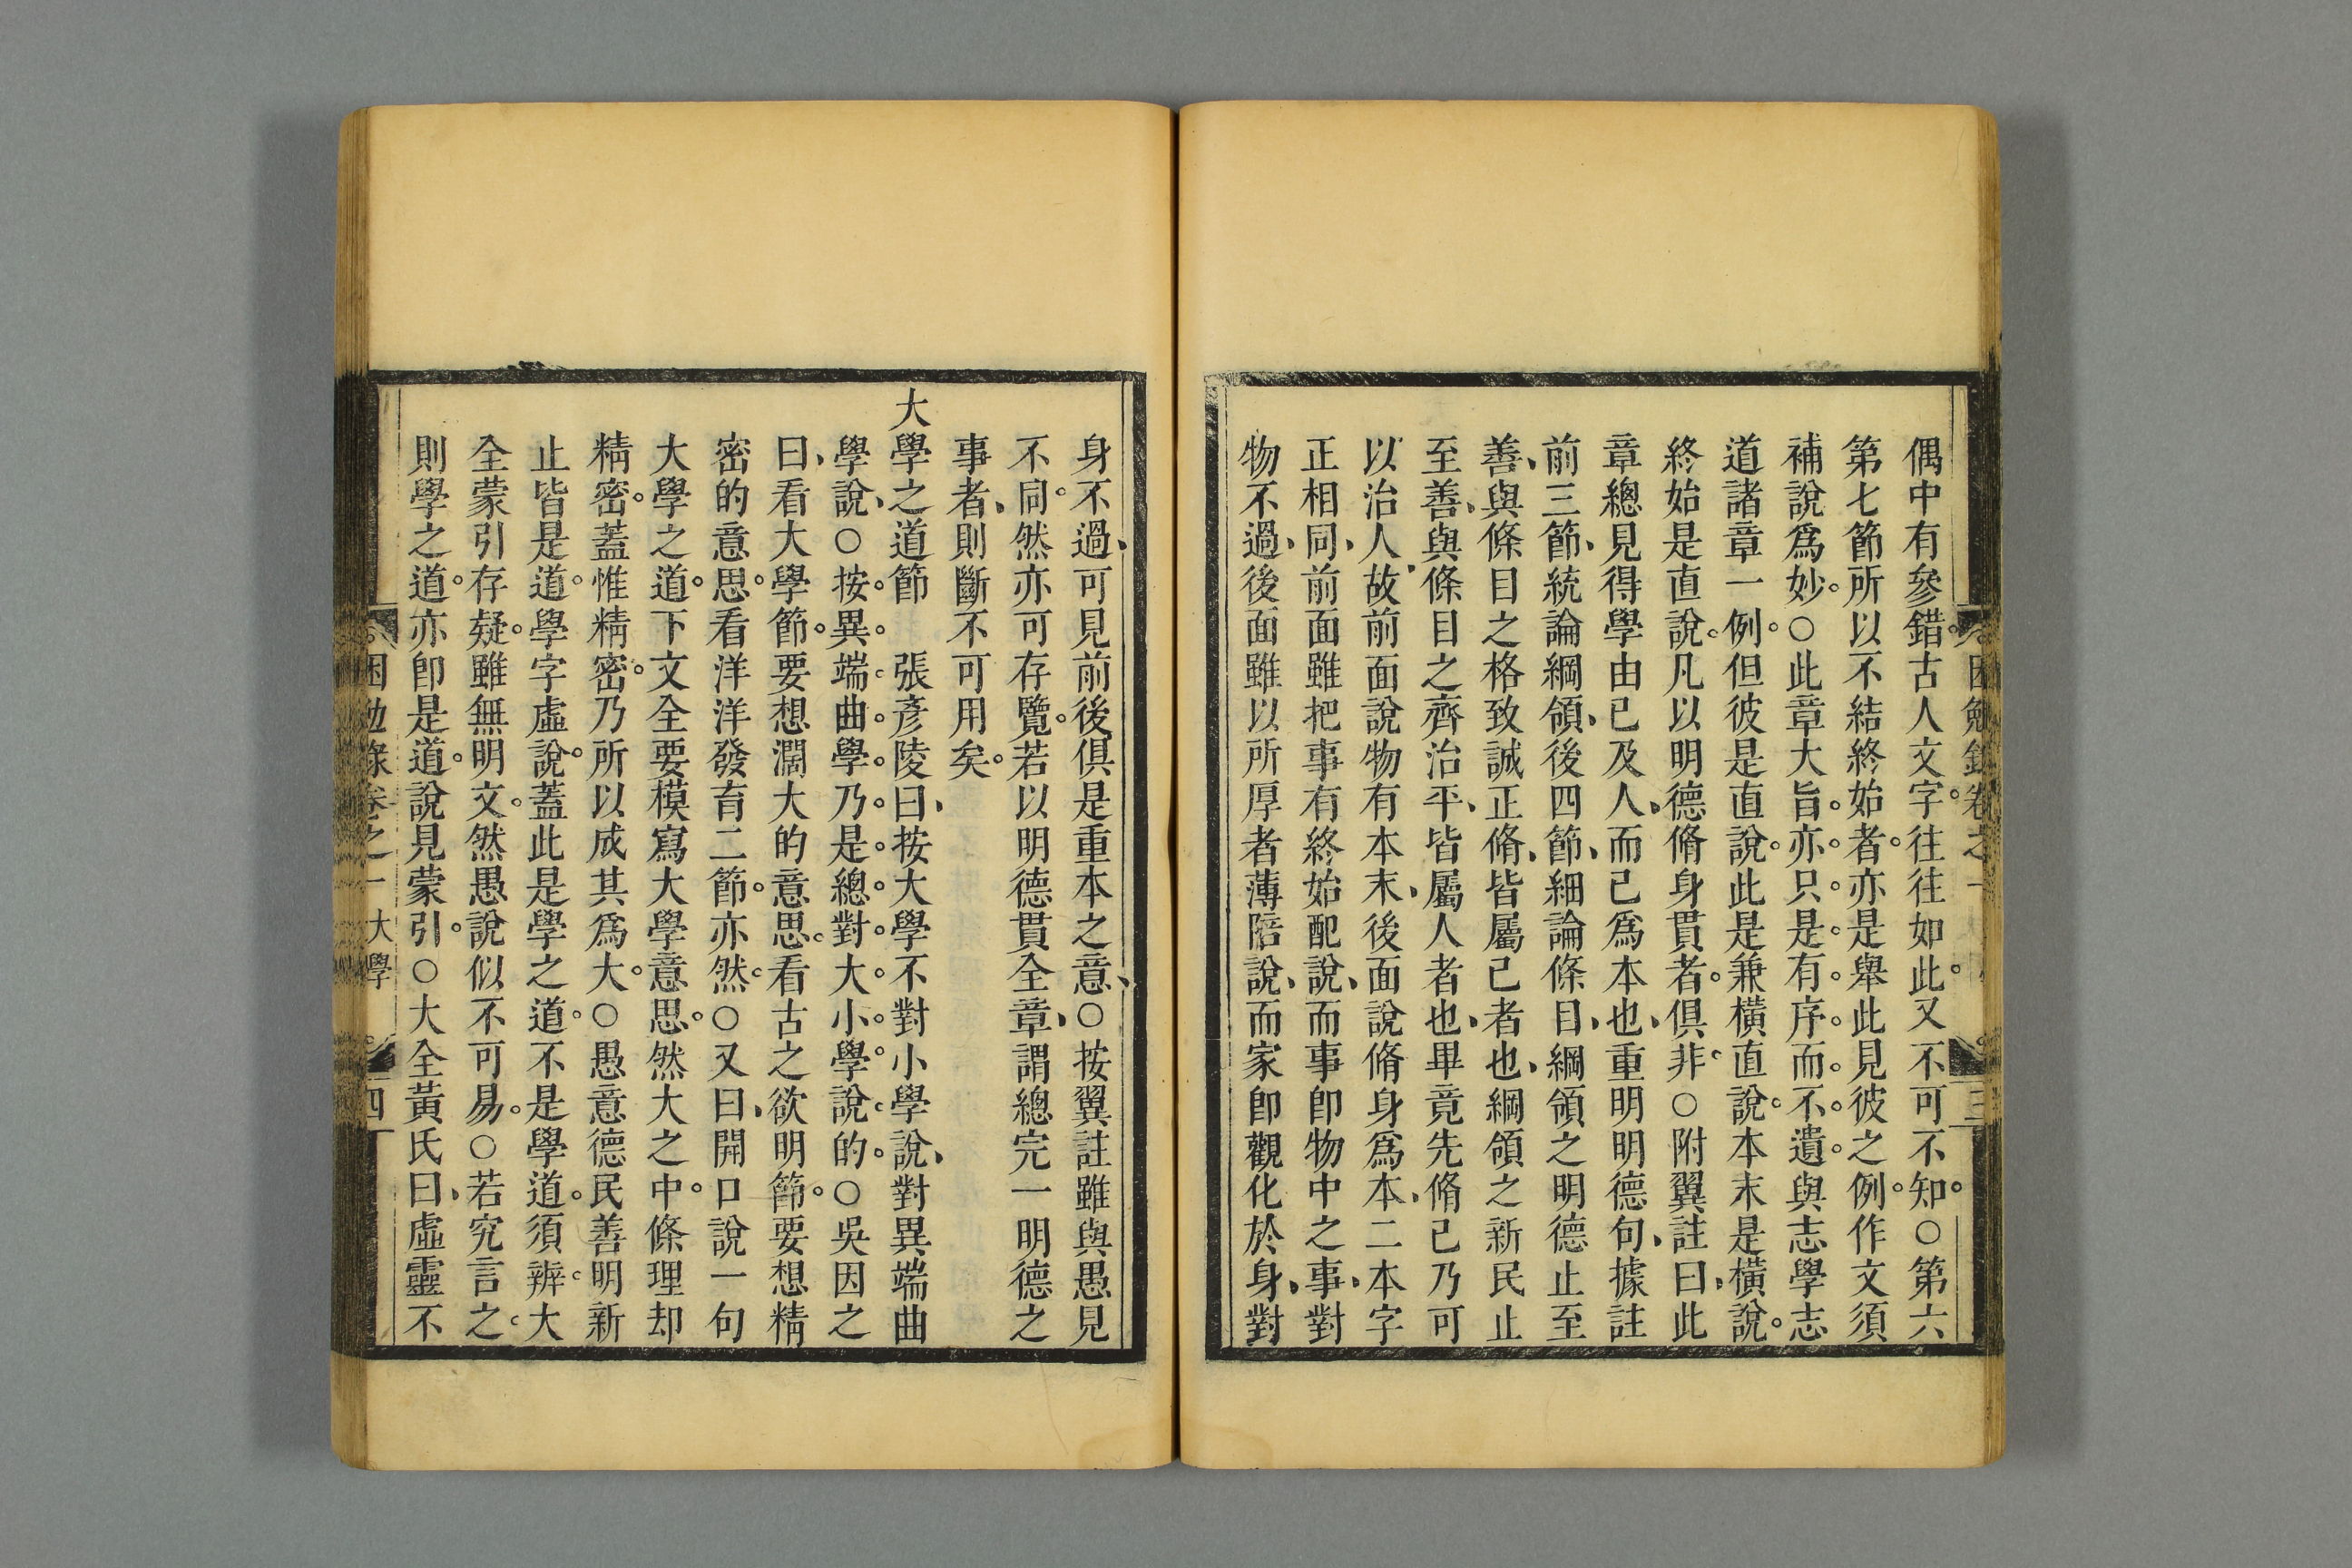 偶中有參錯。古人文字。往往如此。又不可不知。○第六
第七節所以不結終始者。亦是舉此見彼之例。作文須
補說爲妙。○此章大旨。亦。只。是。有。序。而。不。遺。與志學志
道諸章一例。但彼是直說。此是兼橫直說。本末是橫說。
終始是直說。凡以明德脩身貫者。俱非。○附翼註曰、此
章總見得學由己及人、而己爲本也、重明明德句、據註
前三節、統論綱領、後四節、細論條目、綱領之明德止至
善、與條目之格致誠正脩、皆屬己者也、綱領之新民止
至善、與條目之齊治平、皆屬人者也、畢竟先脩己乃可
以治人、故前面說物有本末、後面說脩身爲本、二本字
正相同、前面雖把事有終始配說、而事卽物中之事、對
物不過、後面雖以所厚者薄陪說、而家卽觀化於身、對
身不過、可見前後俱是重本之意、○按翼註雖與愚見
不同。然亦可存覽。若以明德貫全章、謂總完一明德之
事者、則斷不可用矣。
大學之道節　張彥陵曰、按大學不對小學說、對異端曲
學說、○按。異。端。曲。學。乃。是。總。對。大。小。學。說。的。○吳因之
曰、看大學節。要想濶大的意思。看古之欲明節。要想精
密的意思。看洋洋發育二節。亦然。○又曰、開口說一句
大學之道。下文全要模寫大學意思。然大之中。條理却
精密。蓋惟精密。乃所以成其爲大。○愚意德民善明新
止皆是道。學字虛說。蓋此是學之道。不是學道。須辨。大
全蒙引存疑。雖無明文。然愚說似不可易。○若究言之。
則學之道。亦卽是道。說見蒙引。○大全黃氏曰、虛靈不
困勉錄卷之一　大學　四